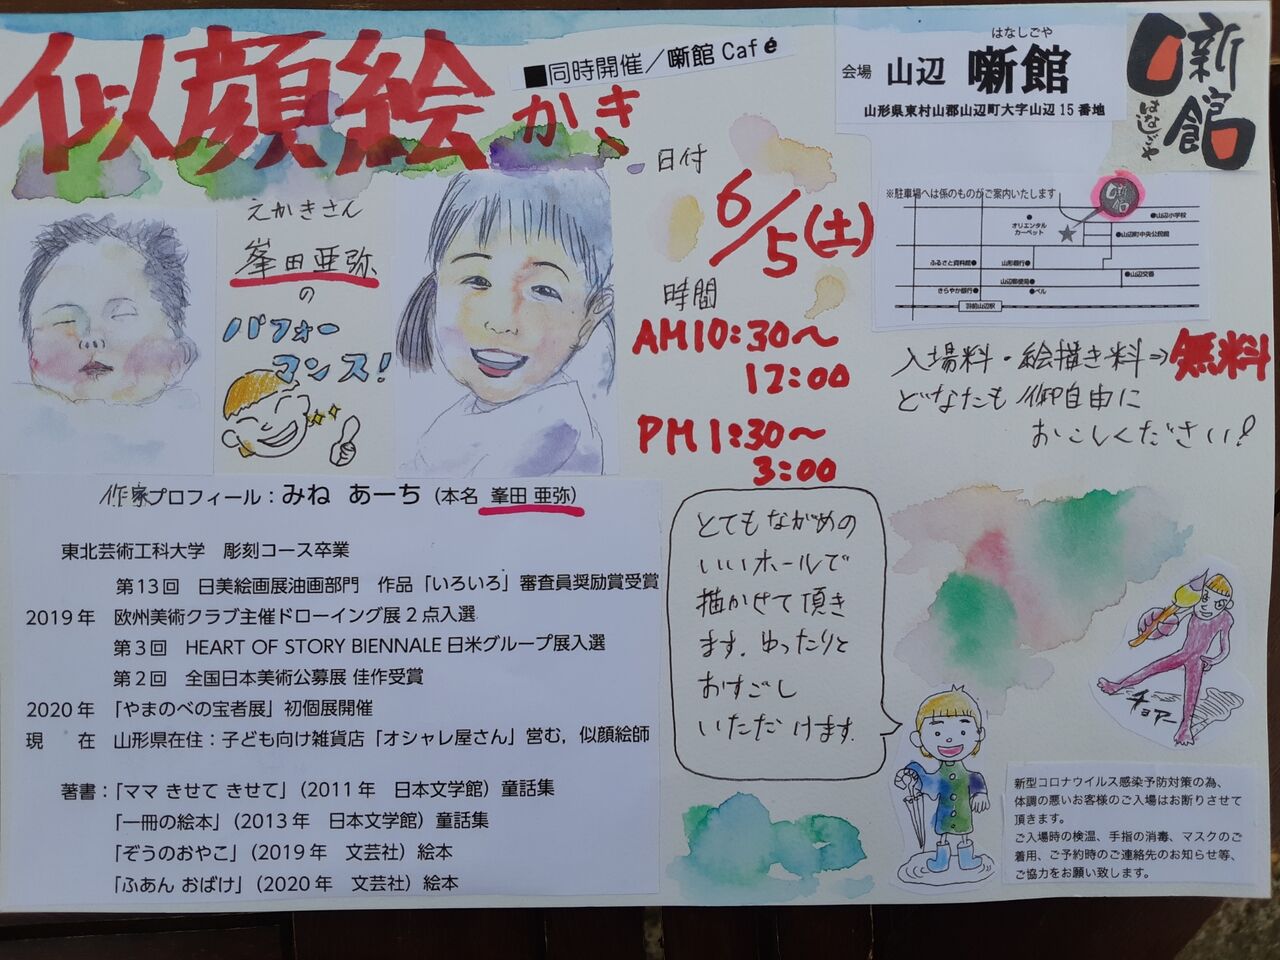 似顔絵かき
■同時開催／噺館 Café
えかきさん
峯田亜弥
の
パフォー
マンス!
日付
6/5(土)
時間
AM10:30〜
12:00
PM1:30〜
3:00
はなしごや
会場 山辺 噺館
山形県東村山郡山辺町大字山辺15番地
噺館
はなしごや
※駐車場へは係のものがご案内いたします
噺館
オリエンタル
カーペット
山辺小学校
山辺町中央公民館
ふるさと資料館
山形銀行
山辺交番
山辺郵便局
きらやか銀行
ベル
羽前山辺駅
入場料・絵描き料⇒無料
どなたも御自由に
おこしください!
作家プロフィール：みね あーち（本名 峯田 亜弥）
東北芸術工科大学 彫刻コース卒業
第13回 日美絵画展油画部門 作品「いろいろ」審査員奨励賞受賞
2019年 欧州美術クラブ主催ドローイング展2点入選
第3回 HEART OF STORY BIENNALE日米グループ展入選
第2回 全国日本美術公募展 佳作受賞
2020年 「やまのべの宝者展」初個展開催
現 在 山形県在住：子ども向け雑貨店「オシャレ屋さん」営む，似顔絵師
著書：「ママ きせて きせて」（2011年 日本文学館）童話集
「一冊の絵本」（2013年 日本文学館）童話集
「ぞうのおやこ」（2019年 文芸社）絵本
「ふあん おばけ」（2020年 文芸社）絵本
とてもながめの
いいホールで
描かせて頂き
ます。ゆったりと
おすごし
いただけます。
チョアー
新型コロナウイルス感染予防対策の為、
体調の悪いお客様のご入場はお断りさせて
頂きます。
ご入場時の検温、手指の消毒、マスクのご
着用、ご予約時のご連絡先のお知らせ等、
ご協力をお願い致します。